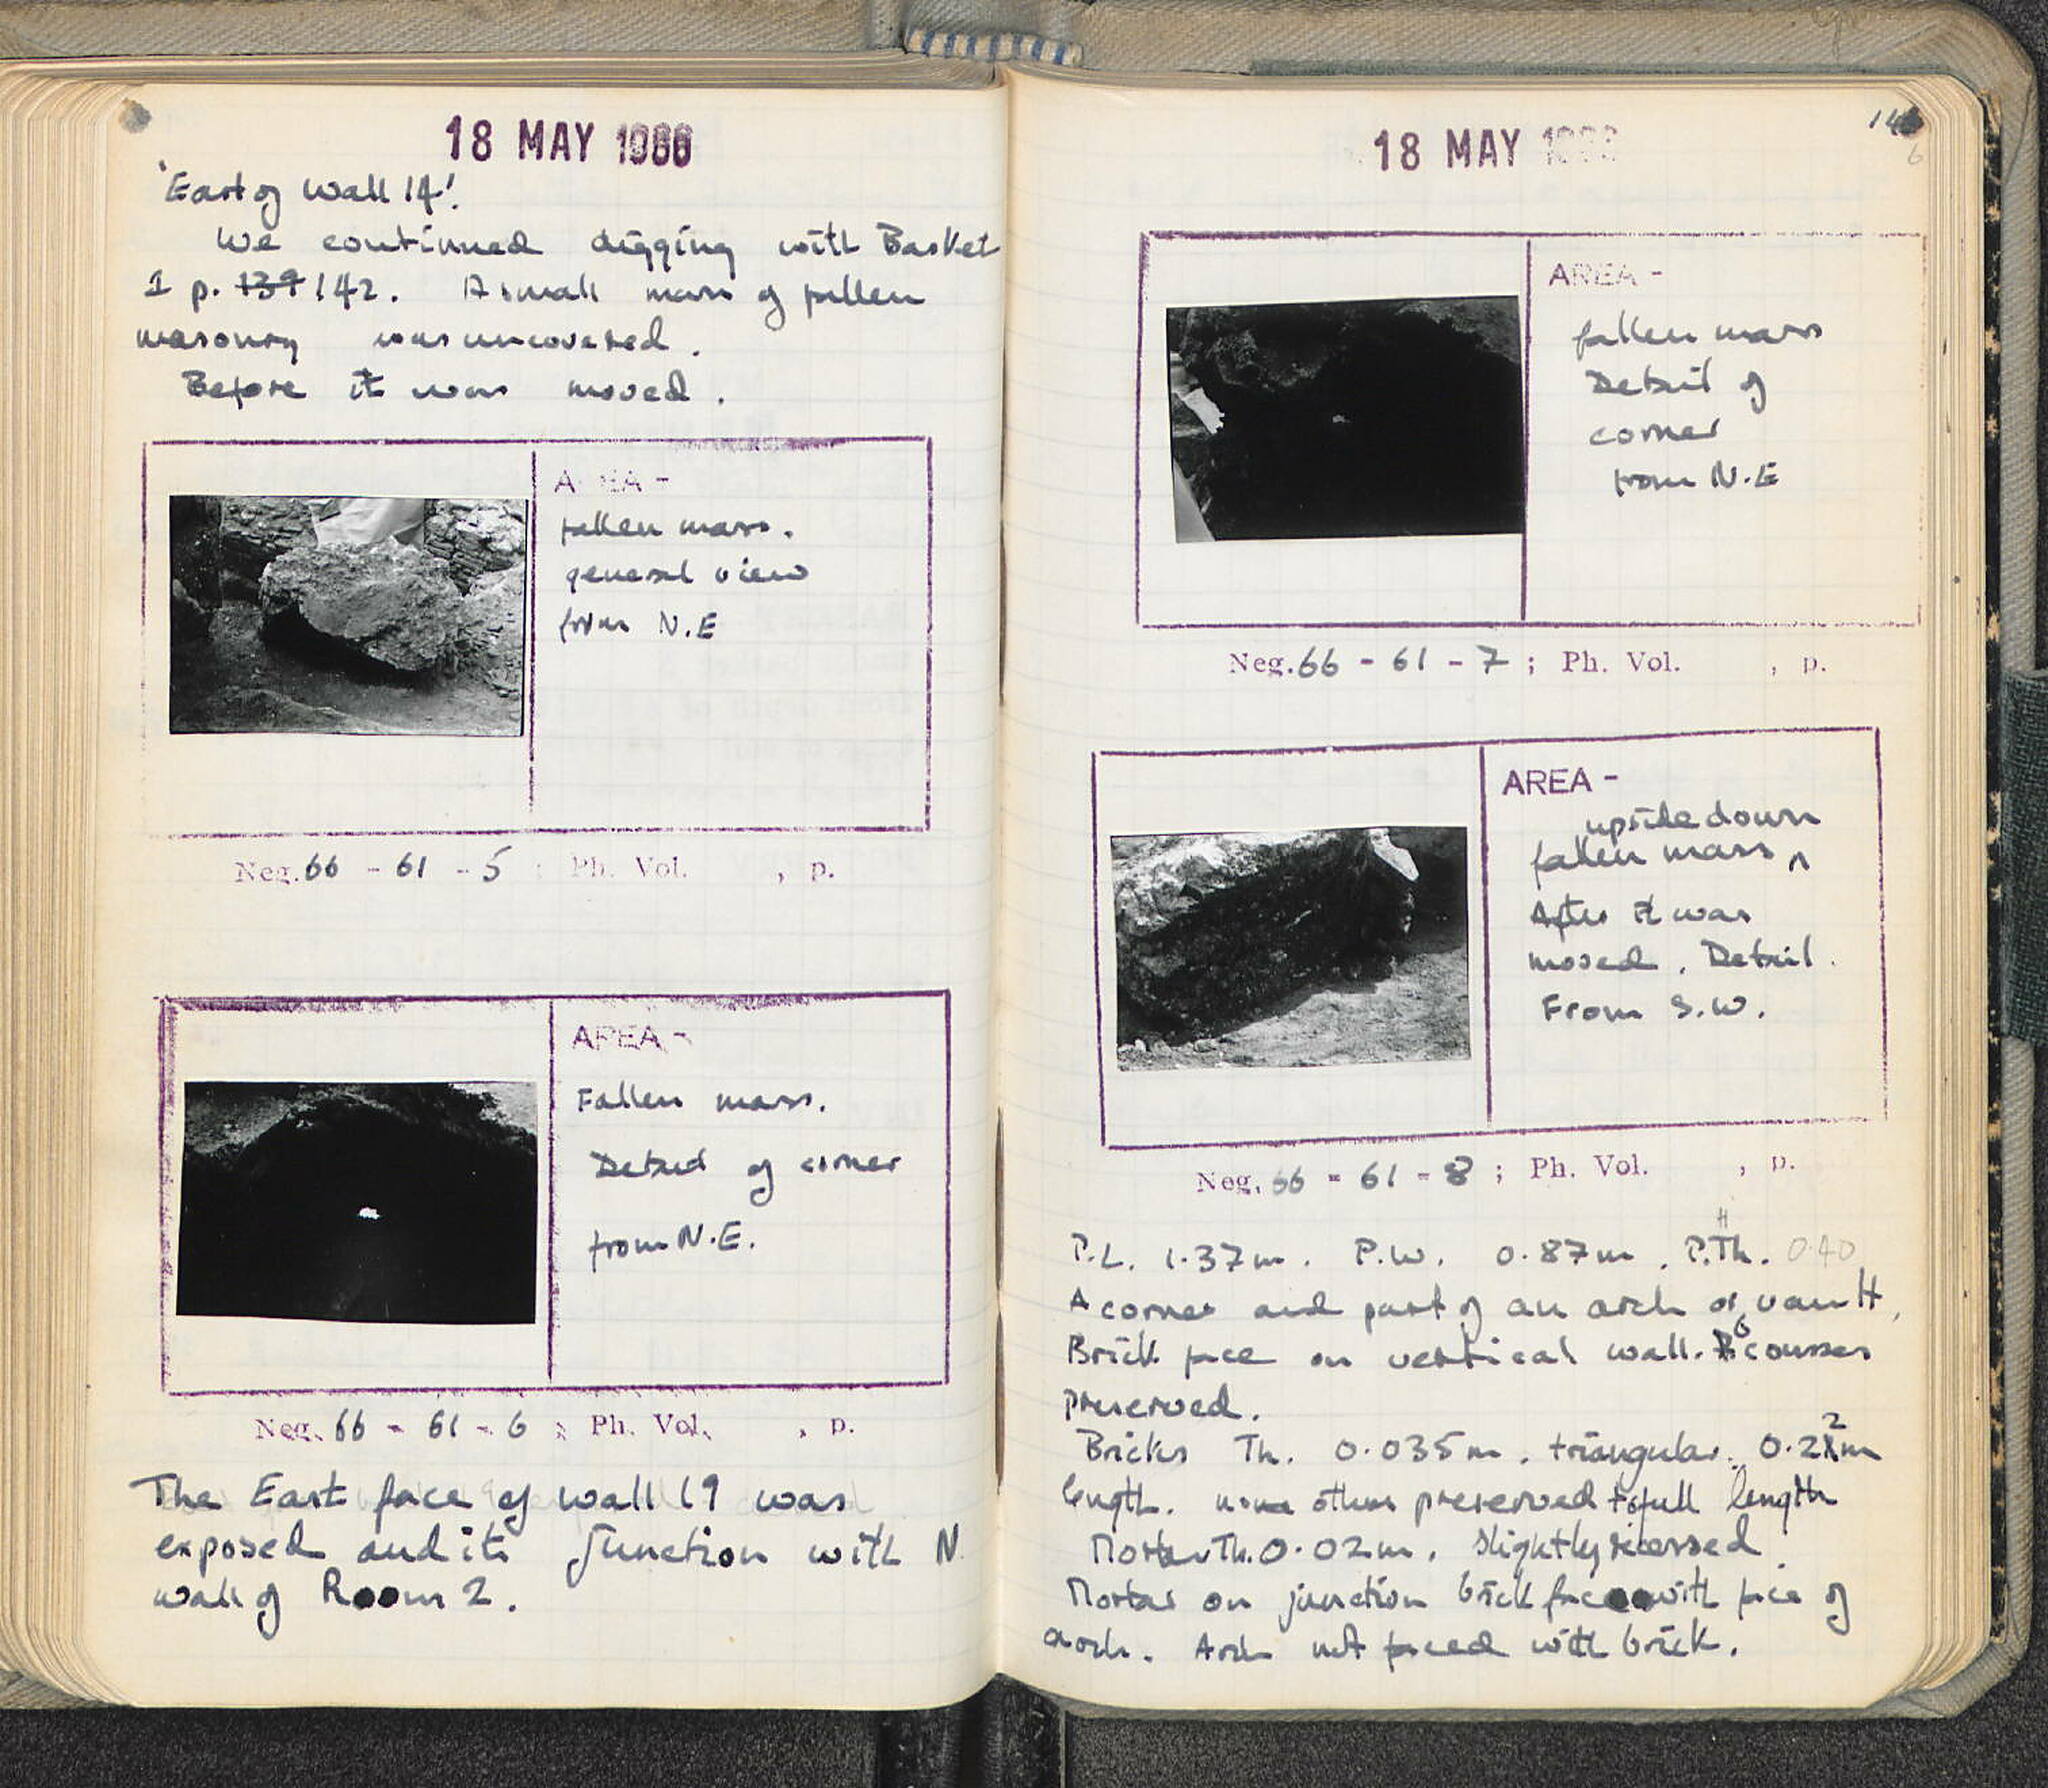 18 MAY 1966
'East of Wall 14'.
We continued digging with Basket
1 p. 139 142. A small mass of fallen
masonry was uncovered.
Before it was moved.
AREA -
fallen mass.
general view
from N.E
Neg. 66 - 61 - 5 ; Ph. Vol. , p.
AREA -
Fallen mass.
Detail of corner
from N.E.
Neg. 66 - 61 - 6 ; Ph. Vol. , p.
The East face of wall 19 was
exposed and its junction with N
wall of Room 2.
18 MAY
AREA -
fallen mass
Detail of
corner
from N.E
Neg. 66 - 61 - 7 ; Ph. Vol. , p.
AREA -
upside down
fallen mass ^
After it was
moved. Detail.
From S.W.
Neg. 66 - 61 - 8 ; Ph. Vol. , p.
H
P.L. 1.37m. P.W. 0.87m. P.Th. 0.40
A corner and part of an arch or vault,
Brick face on vertical wall. 6 courses
preserved.
Bricks Th. 0.035m. triangular. 0.22m
length. none others preserved to full length
Mortar Th. 0.02m. slightly recessed.
Mortar on junction brick face with face of
arch. Arch not faced with brick.